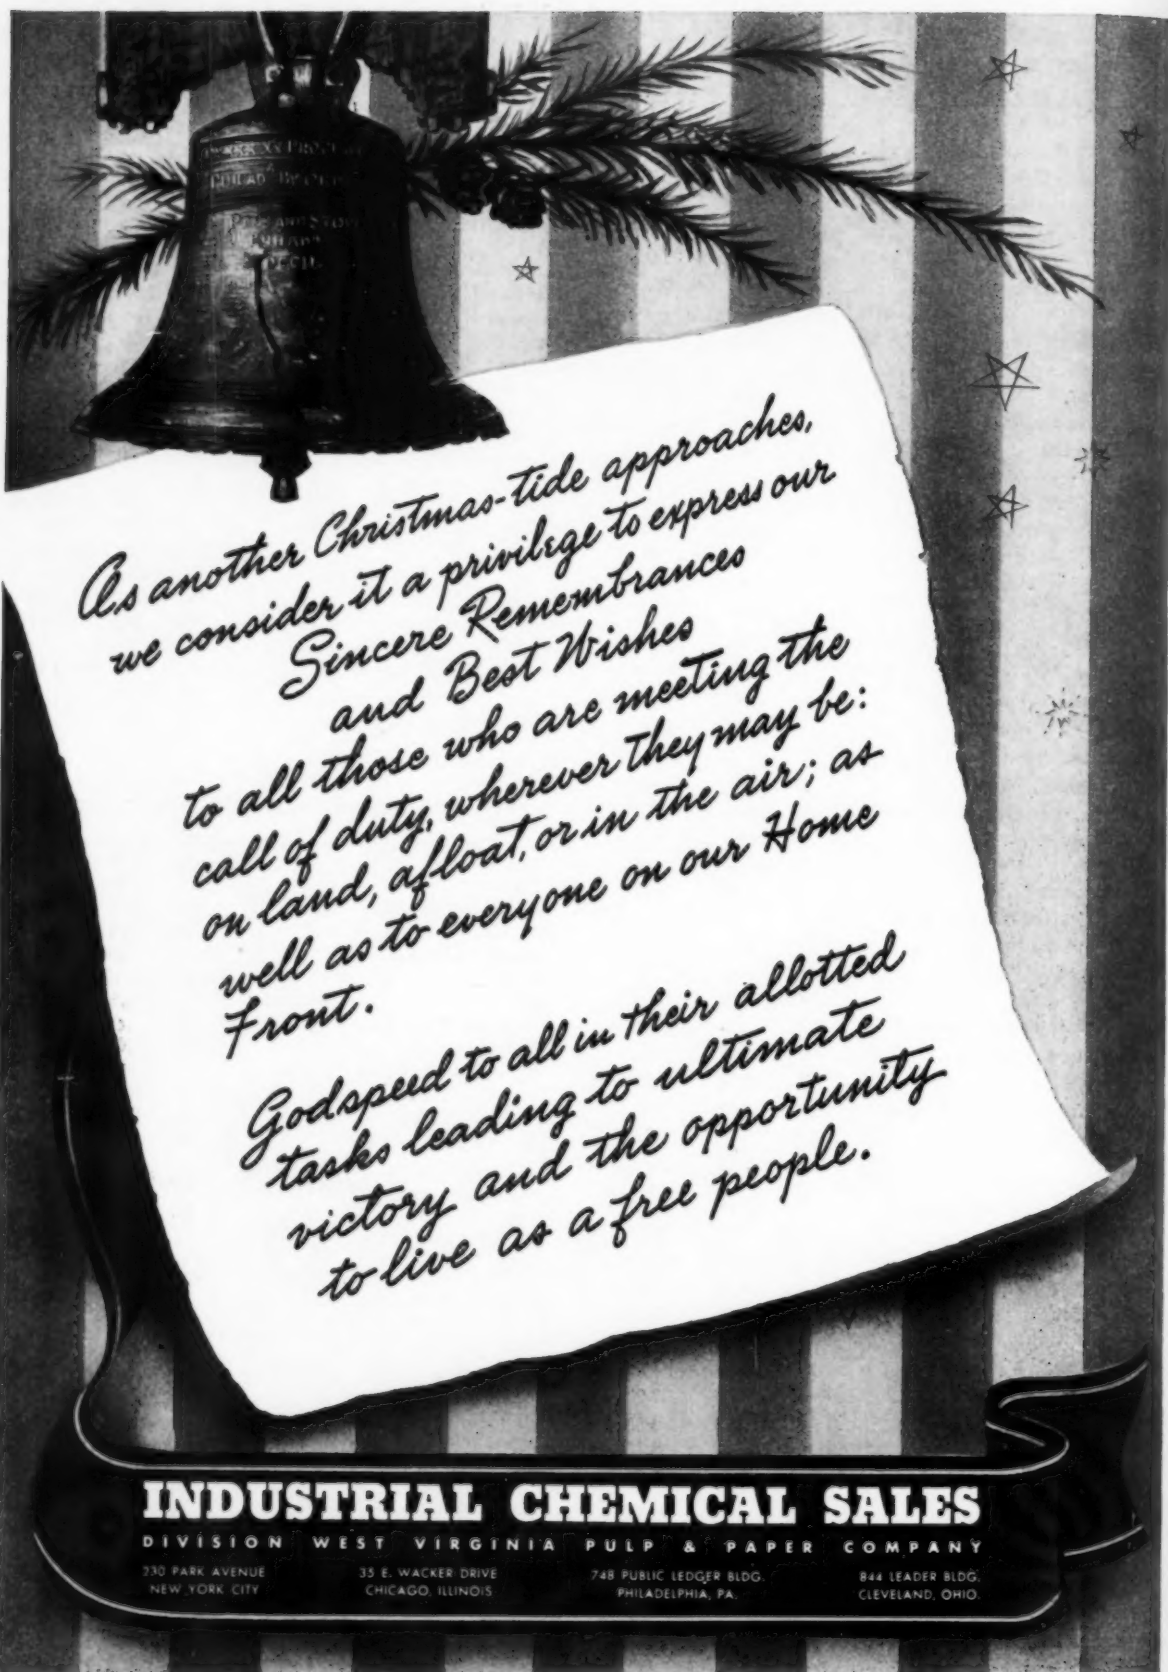 PHILAD
As another Christmas-tide approaches,
we consider it a privilege to express our
Sincere Remembrances
and Best Wishes
to all those who are meeting the
call of duty, wherever they may be:
on land, afloat, or in the air; as
well as to everyone on our Home
Front.
Godspeed to all in their allotted
tasks leading to ultimate
victory and the opportunity
to live as a free people.
INDUSTRIAL CHEMICAL SALES
DIVISION WEST VIRGINIA PULP & PAPER COMPANY
230 PARK AVENUE
NEW YORK CITY
35 E. WACKER DRIVE
CHICAGO, ILLINOIS
748 PUBLIC LEDGER BLDG.
PHILADELPHIA, PA.
844 LEADER BLDG.
CLEVELAND, OHIO.